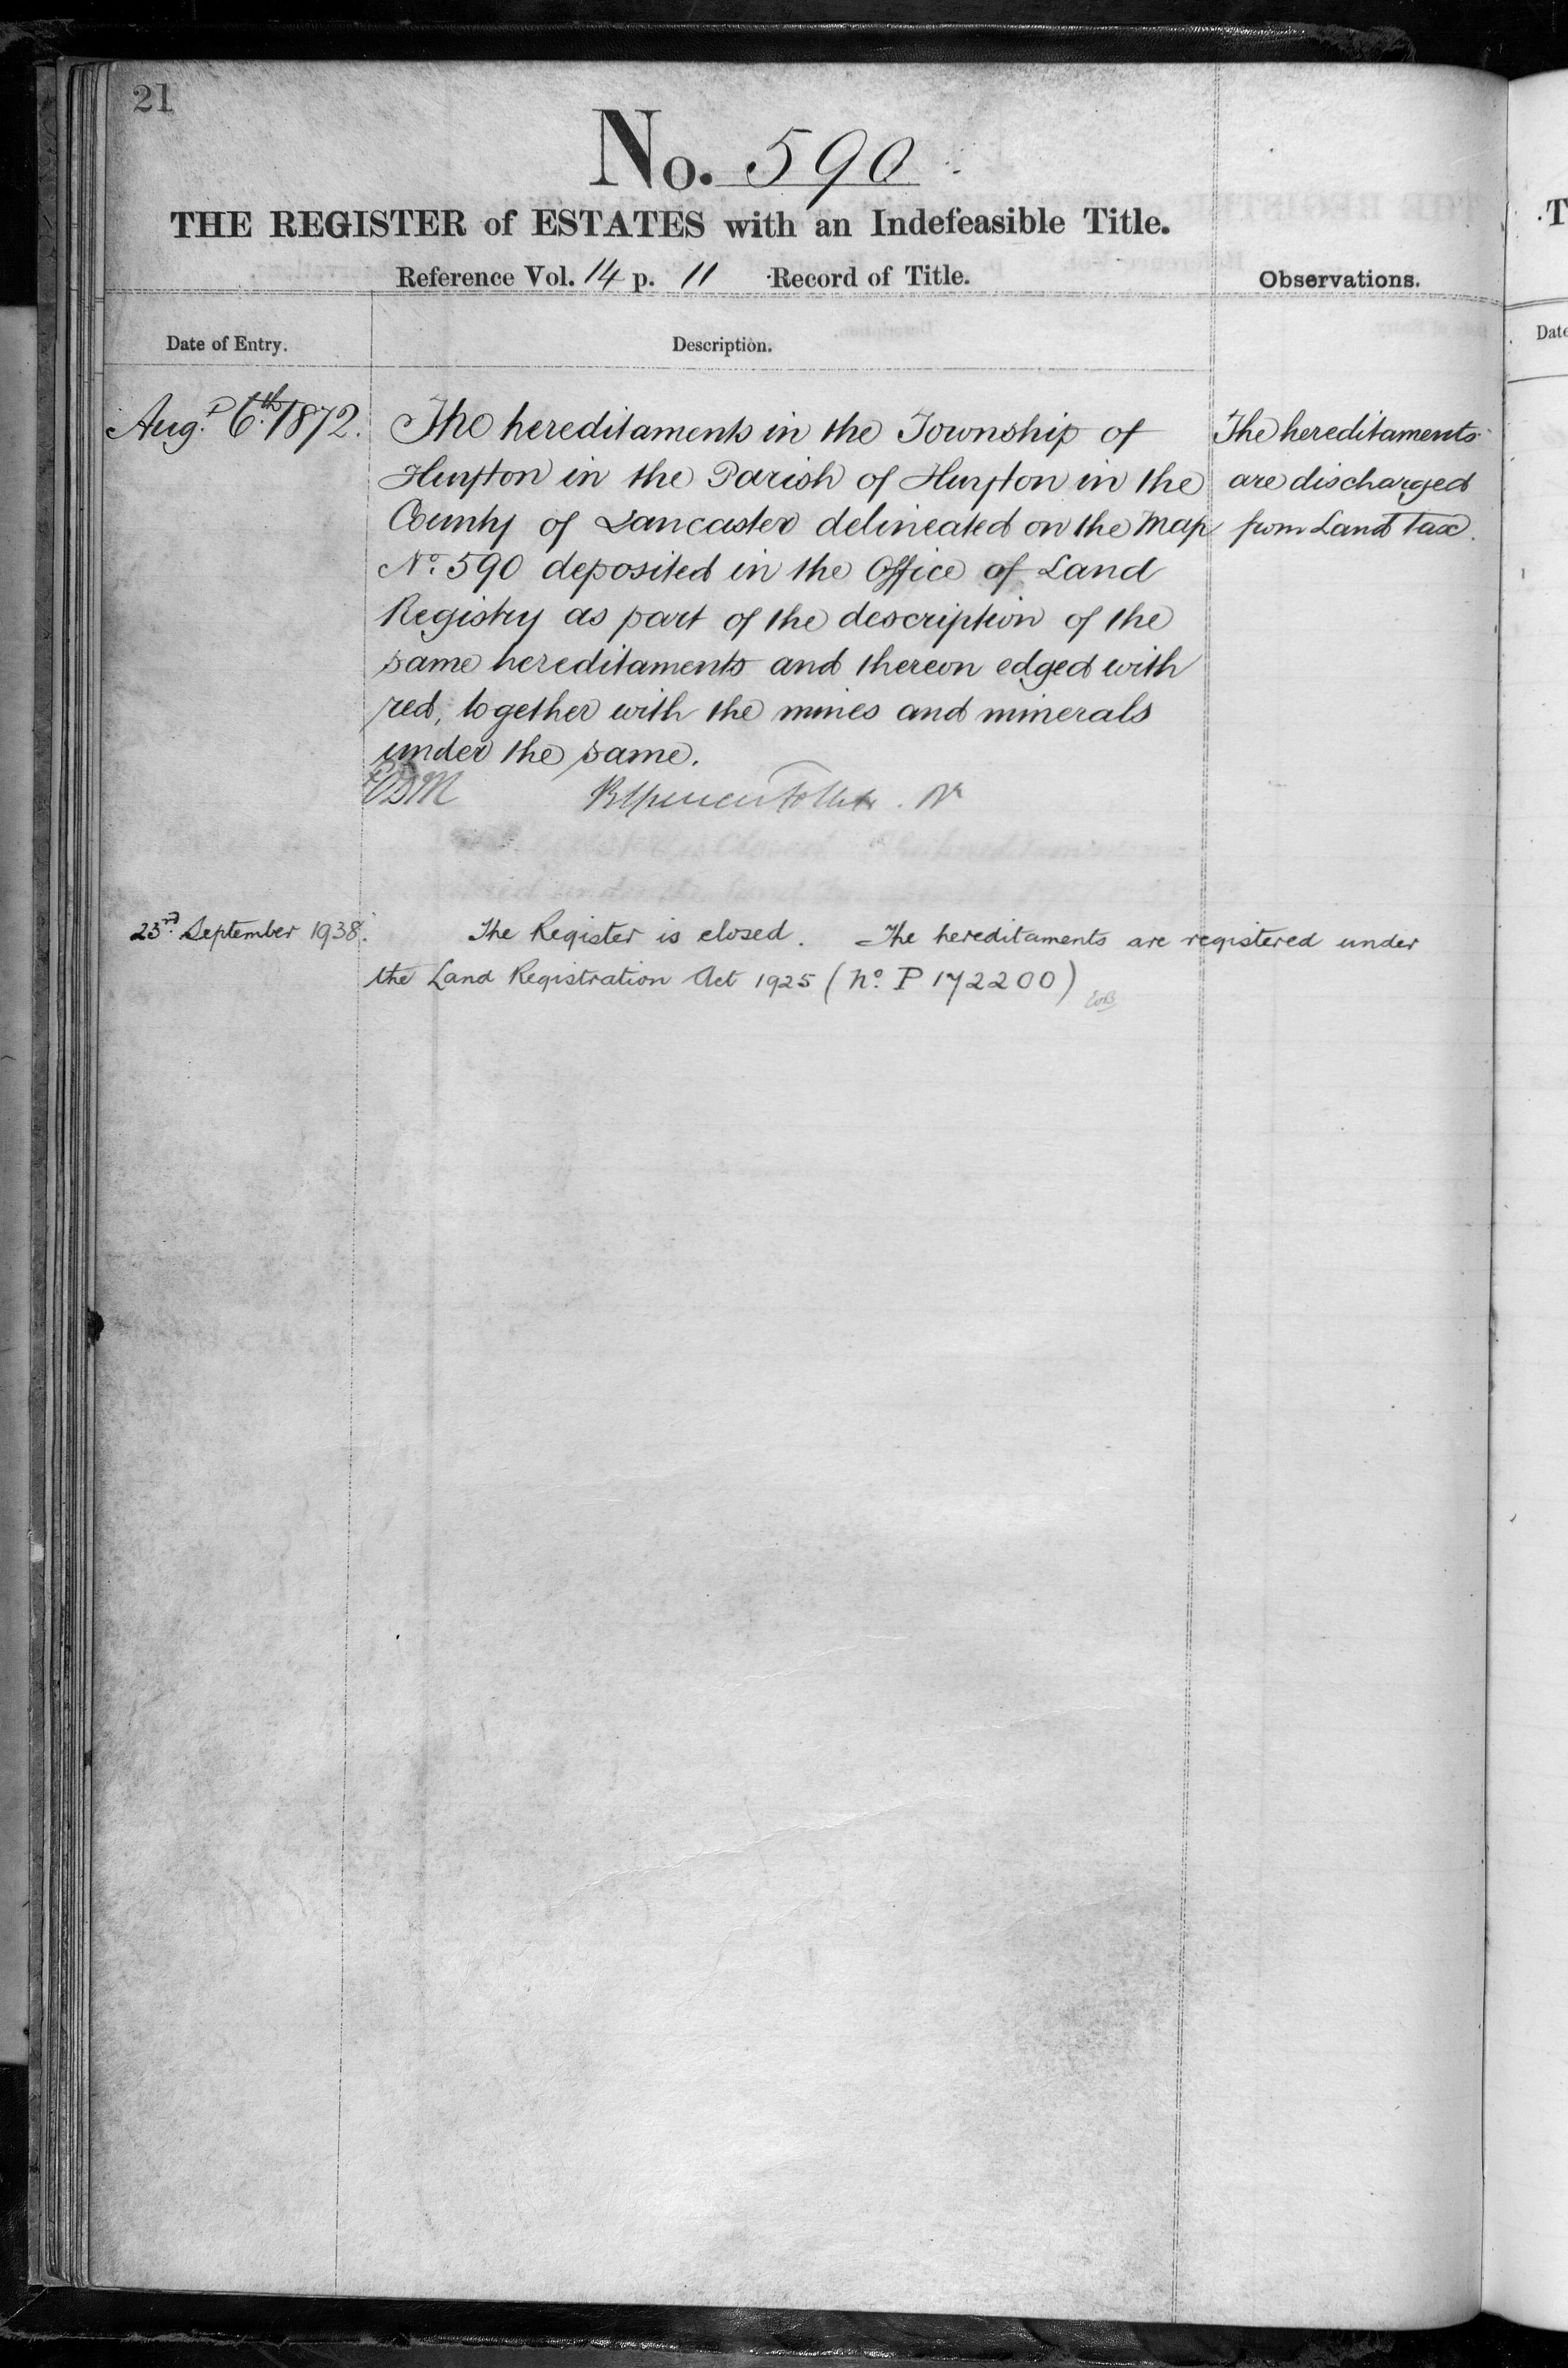 21
No. 590
THE REGISTER of ESTATES with an Indefeasible Title.
Reference Vol. 14 p. 11 Record of Title.
Observations.
Date of Entry.
Description.
Augt. 6th. 1872.
The hereditaments in the Township of
Huyton in the Parish of Huyton in the
County of Lancaster delineated on the Map
No. 590 deposited in the Office of Land
Registry as part of the description of the
same hereditaments and thereon edged with
red, together with the mines and minerals
under the same.
The hereditaments
are discharged
from Land Tax.
23rd. September 1938.
The Register is closed. The hereditaments are registered under
the Land Registration Act 1925 (No. P 172200)
T
Date